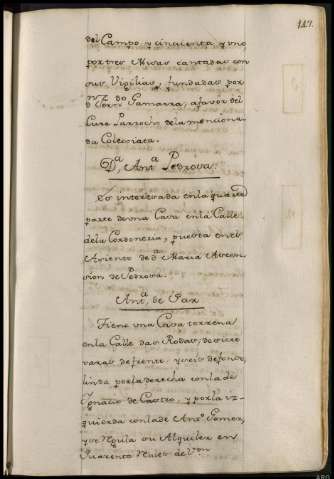 147.
del Campo, y cinquenta y uno
por tres Misas cantadas con
sus Vigilias, fundadas por
Gamarra, a favor del
Cura Parroco de la menciona
da Colegiata.
D.ª Ant.ª Pedrova.
Es interesada en la quarta
parte de una Casa en la Calle
de la Cordoneria, puesta en el
Asiento de D.ª Maria Ascen-
sion de Pedrova.
Ant.ª de Paz
Tiene una Casa terrena
en la Calle das Rodas, de siete
varas de frente, y seis de fondo,
linda por la derecha con la de
Ignacio de Castro, y por la iz-
quierda con la de Ant.º Gomez,
y se Regula su Alquiler en
Quarenta Rales de V.on